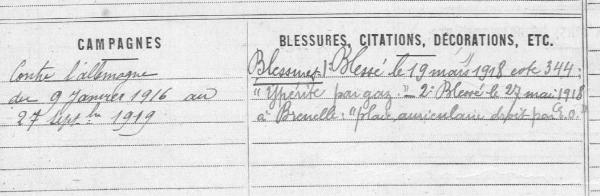 CAMPAGNES
Contre l'allemagne
du 9 Janvier 1916 au
27 Septbre 1919
BLESSURES, CITATIONS, DÉCORATIONS, ETC.
Blessures 1° Blessé le 19 mars 1918 cote 344:
"Ypérité par gaz." _ 2° Blessé le 27 mai 1918
à Brenelle: "plaie auriculaire droit par E.O."